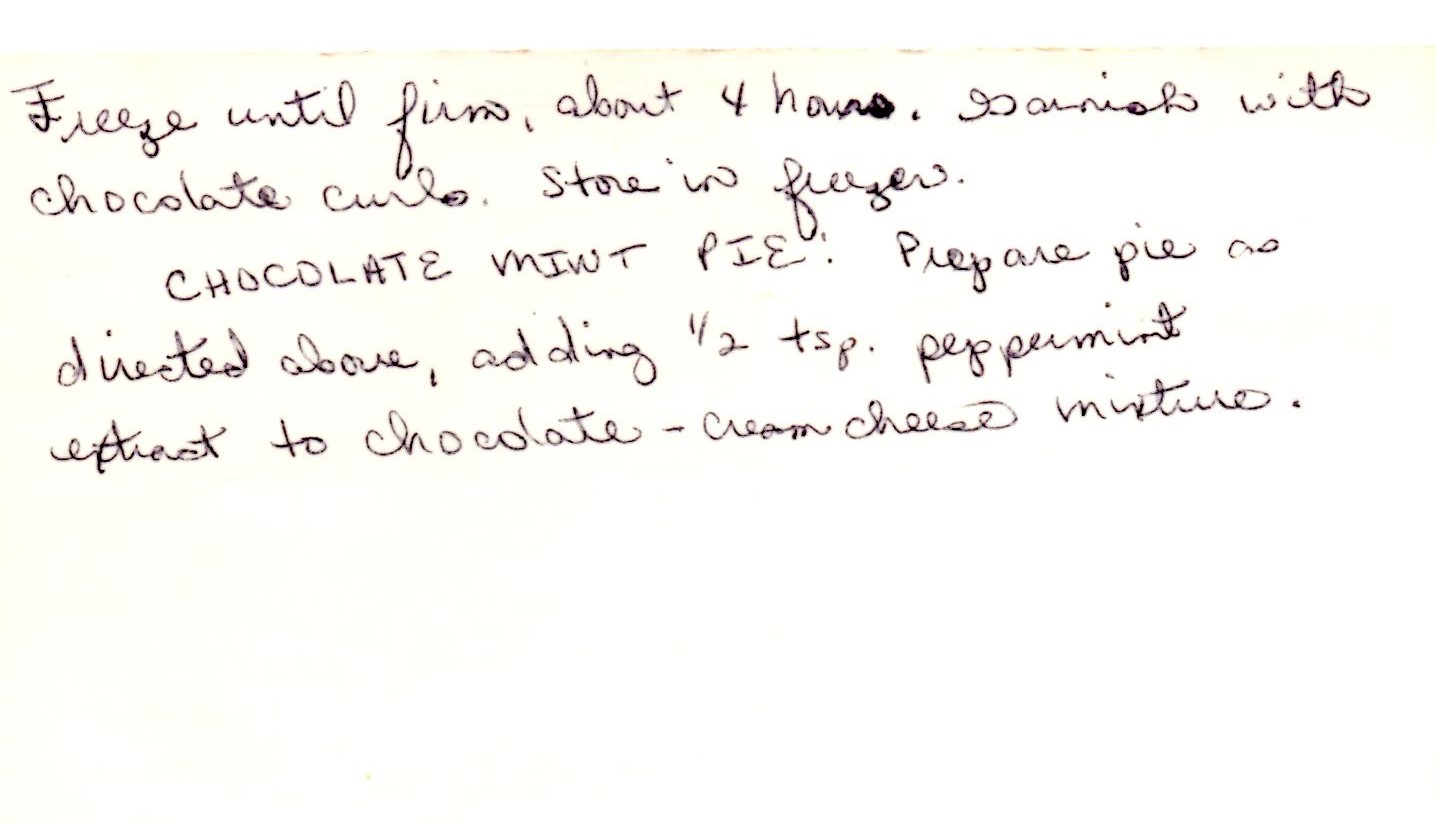 Freeze until firm, about 4 hours. Garnish with
chocolate curls. Store in freezer.
CHOCOLATE MINT PIE: Prepare pie as
directed above, adding 1/2 tsp. peppermint
extract to chocolate - cream cheese mixture.